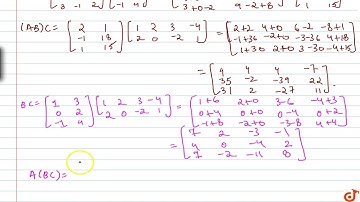 3 -1 -2 3+0-2 9-2+8
(AB)C = [2 1 -1 18 1 15] [1 2 3 -4 2 0 -2 1] = [2+2 4+0 6-2 -8+1 -1+36 -2+0 -3-36 4+18 1+30 2+0 3-30 -4+15]
= [4 4 4 -7 35 -2 -39 22 31 2 -27 11]
BC = [1 3 0 2 -1 4] [1 2 3 -4 2 0 -2 1] = [1+6 2+0 3-6 -4+3 0+4 0+0 0-4 0+2 -1+8 -2+0 -3-8 4+4]
= [7 2 -3 -1 4 0 -4 2 7 -2 -11 8]
A(BC)=